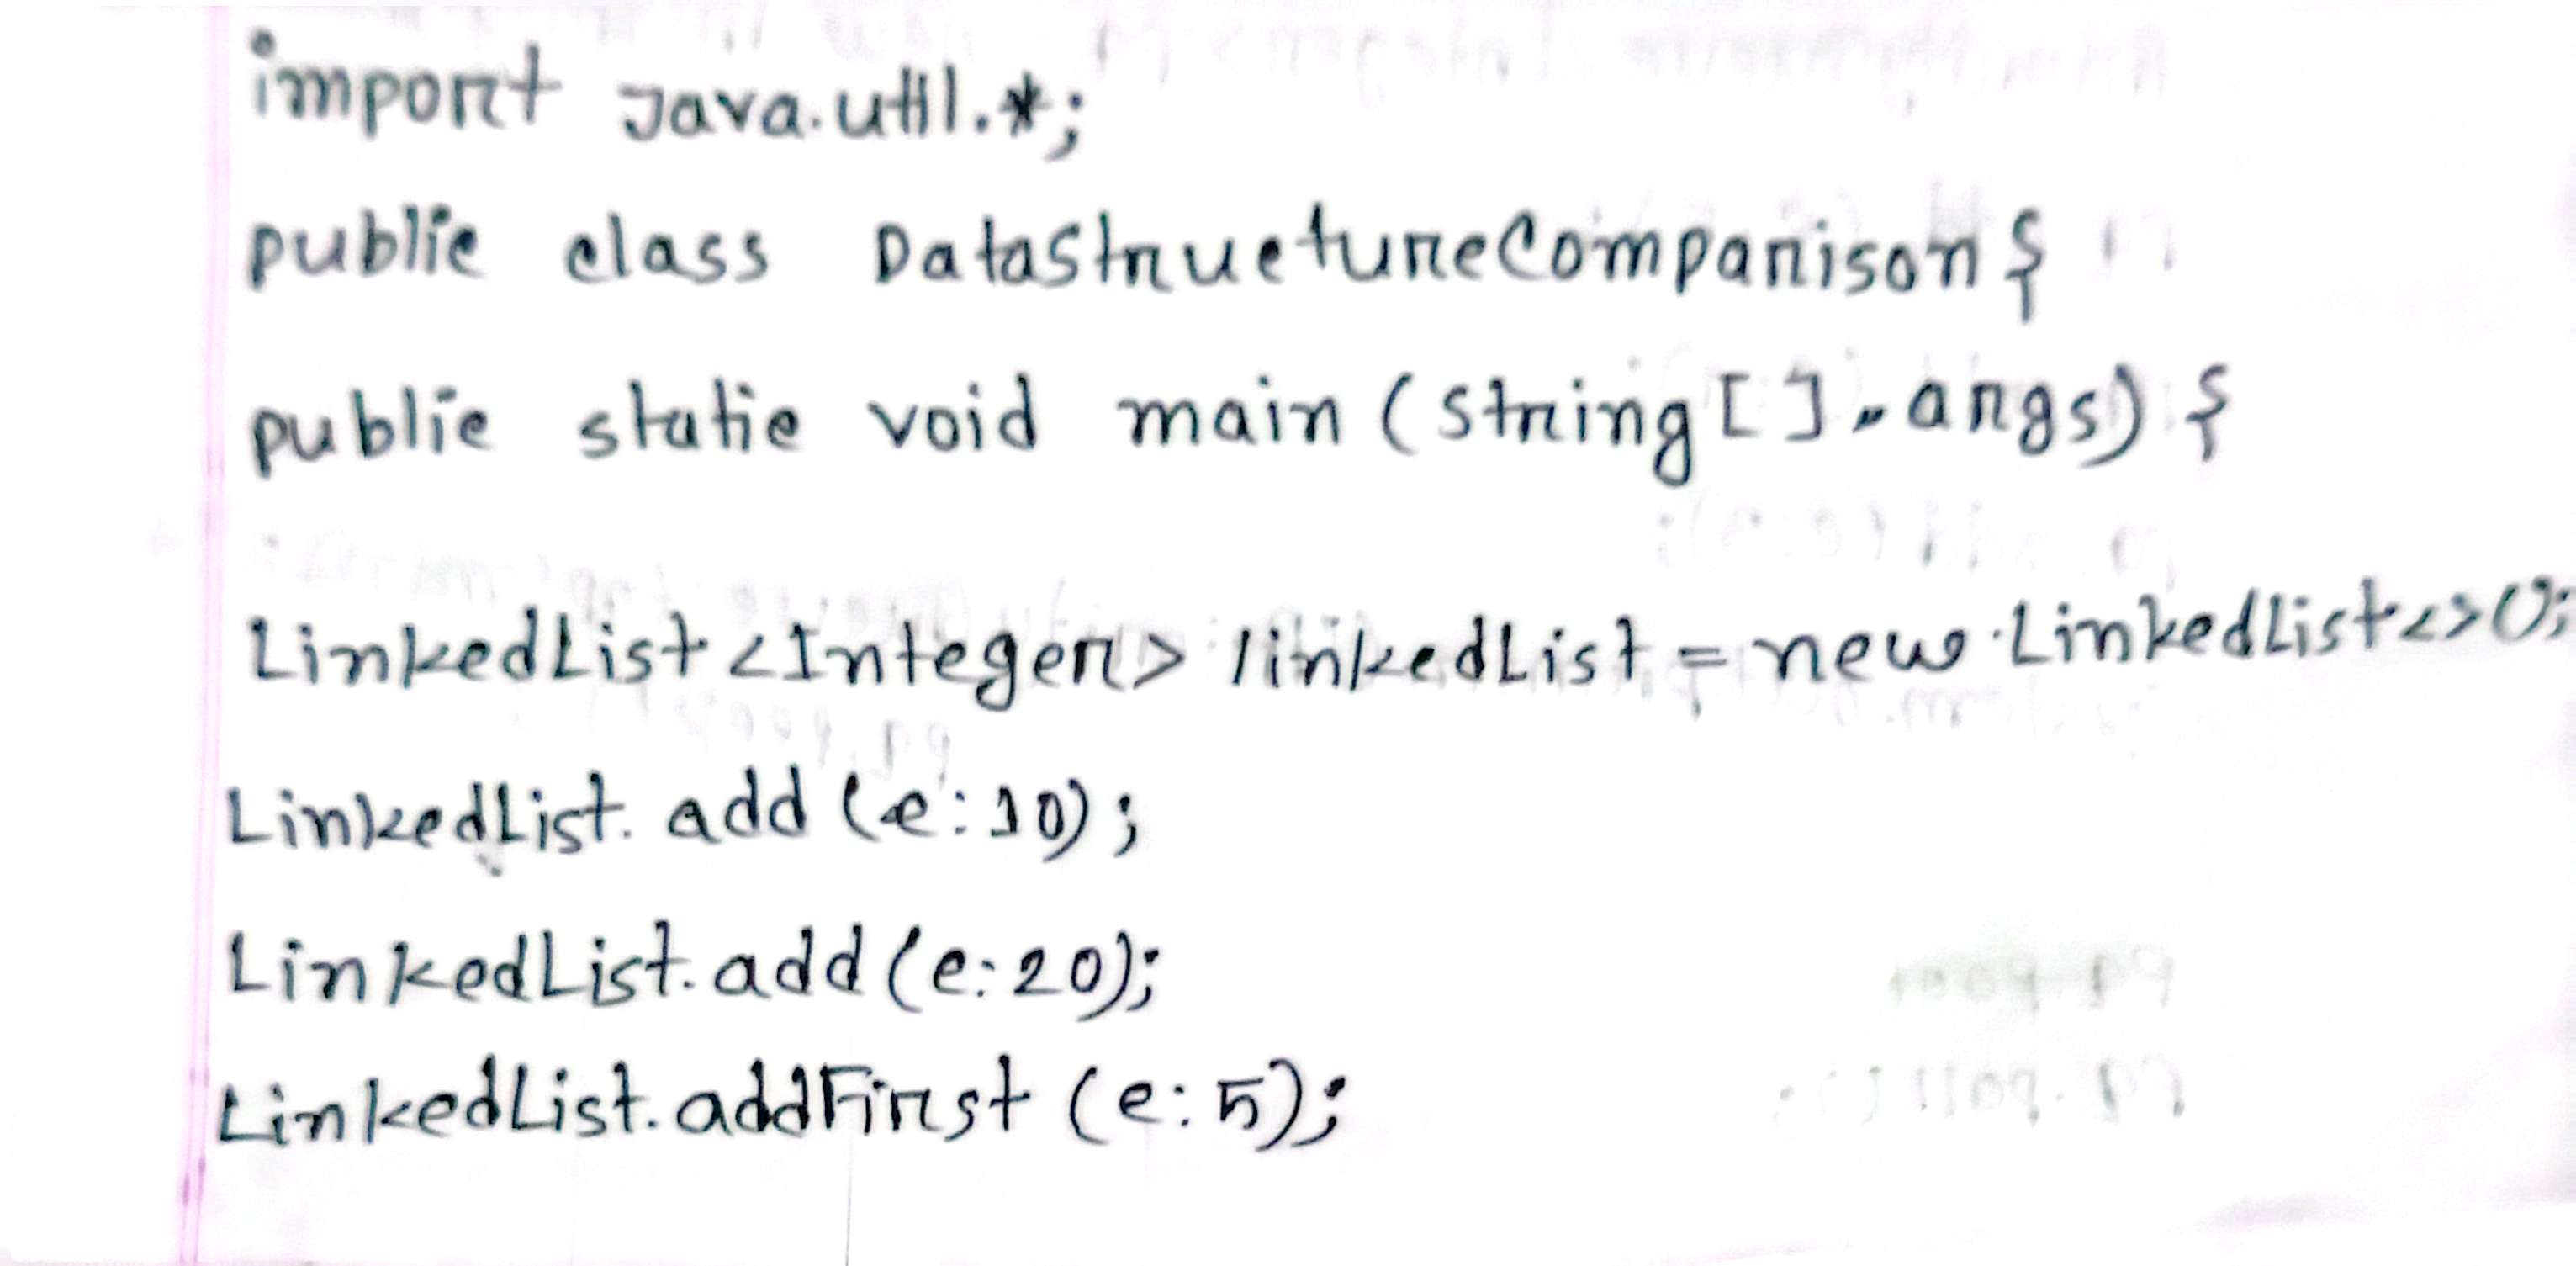 import Java.util.*;
public class DataStructureComparison {
public static void main (String[] args) {
LinkedList <Integer> linkedList = new LinkedList<>();
LinkedList. add (e: 10);
LinkedList. add (e: 20);
LinkedList. addFirst (e: 5);